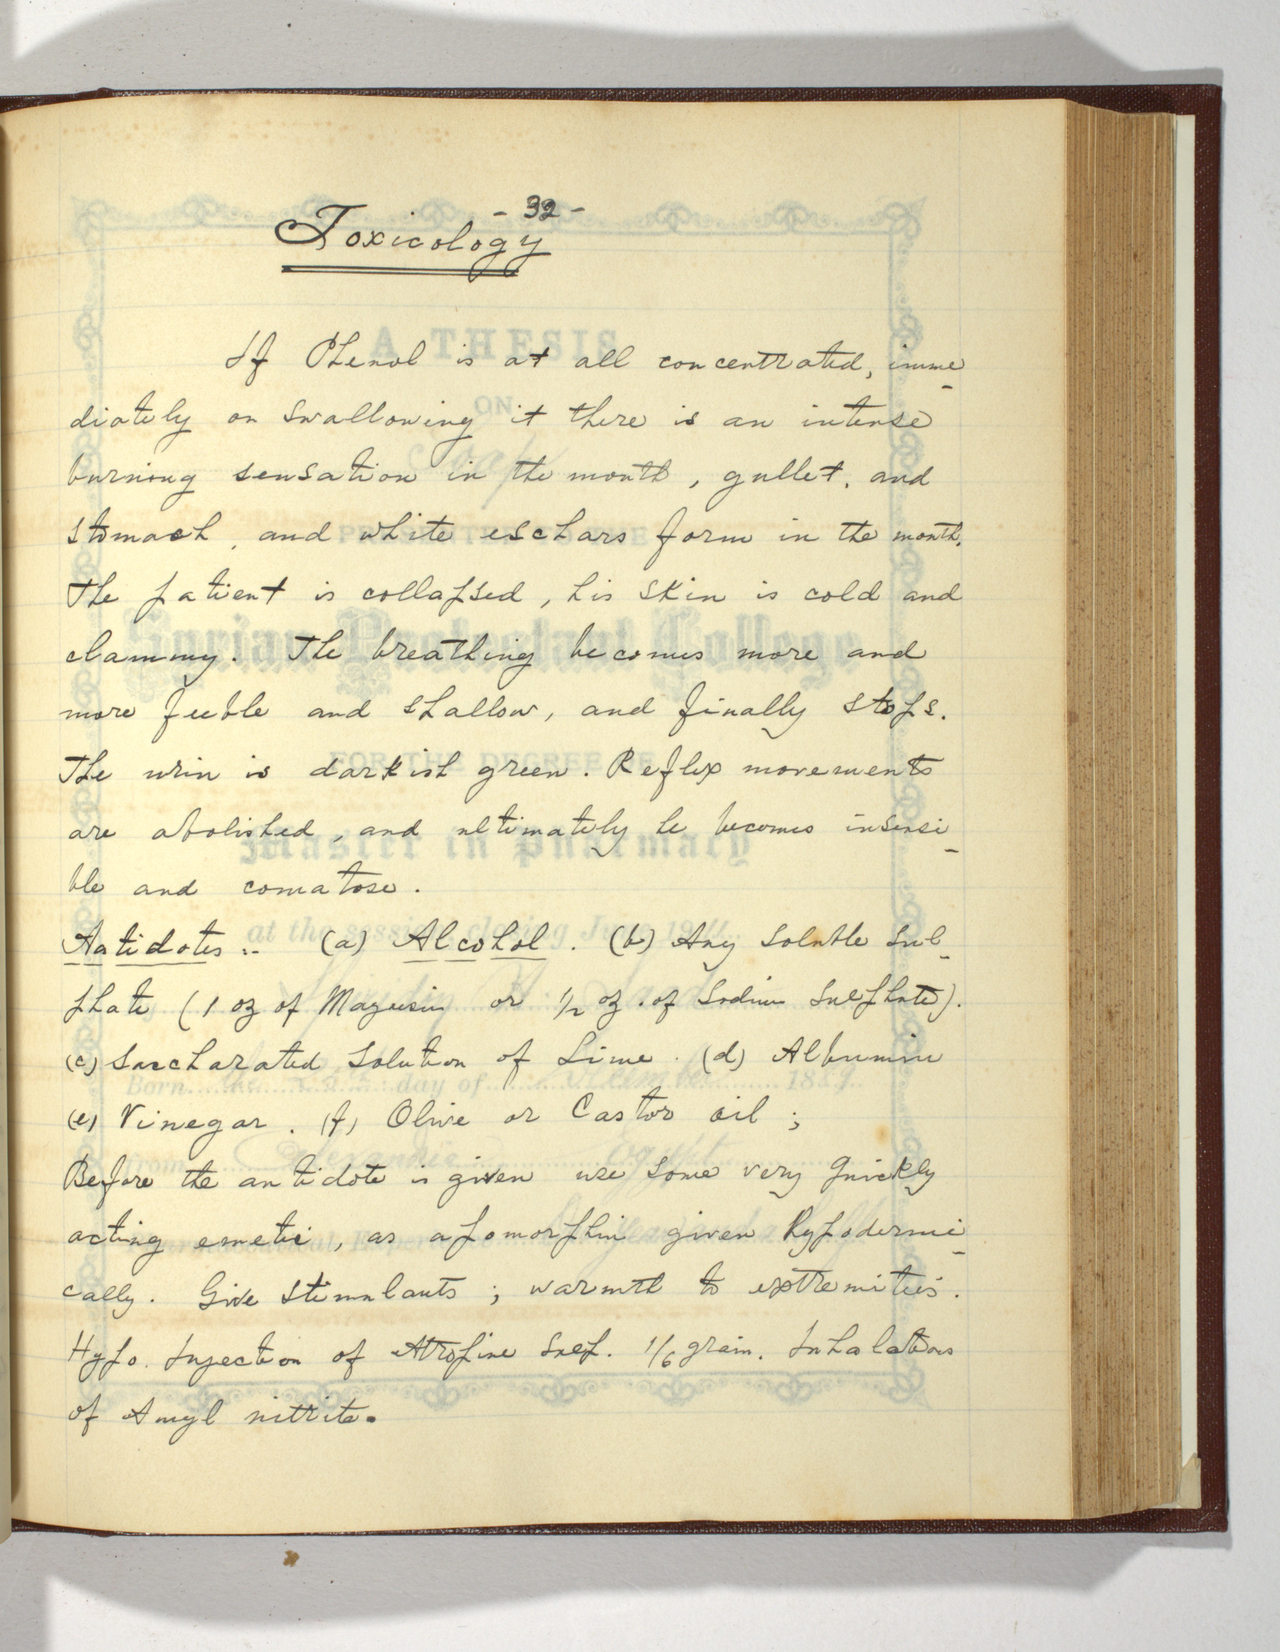 - 32 -
Toxicology
If Phenol is at all concentrated, imme-
diately on swallowing it there is an intense
burning sensation in the mouth, gullet, and
stomach, and white eschars form in the mouth.
The patient is collapsed, his skin is cold and
clammy. The breathing becomes more and
more feeble and shallow, and finally stops.
The urin is darkish green. Reflex movements
are abolished, and ultimately he becomes insensi-
ble and comatose.
Antidotes :- (a) Alcohol. (b) Any soluble Sul-
phate (1 oz of Magnesium or 1/2 oz. of Sodium Sulphate).
(c) Saccharated Solution of Lime. (d) Albumin
(e) Vinegar. (f) Olive or Castor oil;
Before the antidote is given use some very quickly
acting emetic, as apomorphin given hypodermi-
cally. Give stimulants; warmth to extremities.
Hypo. Injection of Atropine Sulf. 1/6 grain. Inhalations
of Amyl nitrite.
A THESIS
ON
Syrian Protestant College
FOR THE DEGREE OF
Master in Pharmacy
at the session closing
Born day of
from Egypt